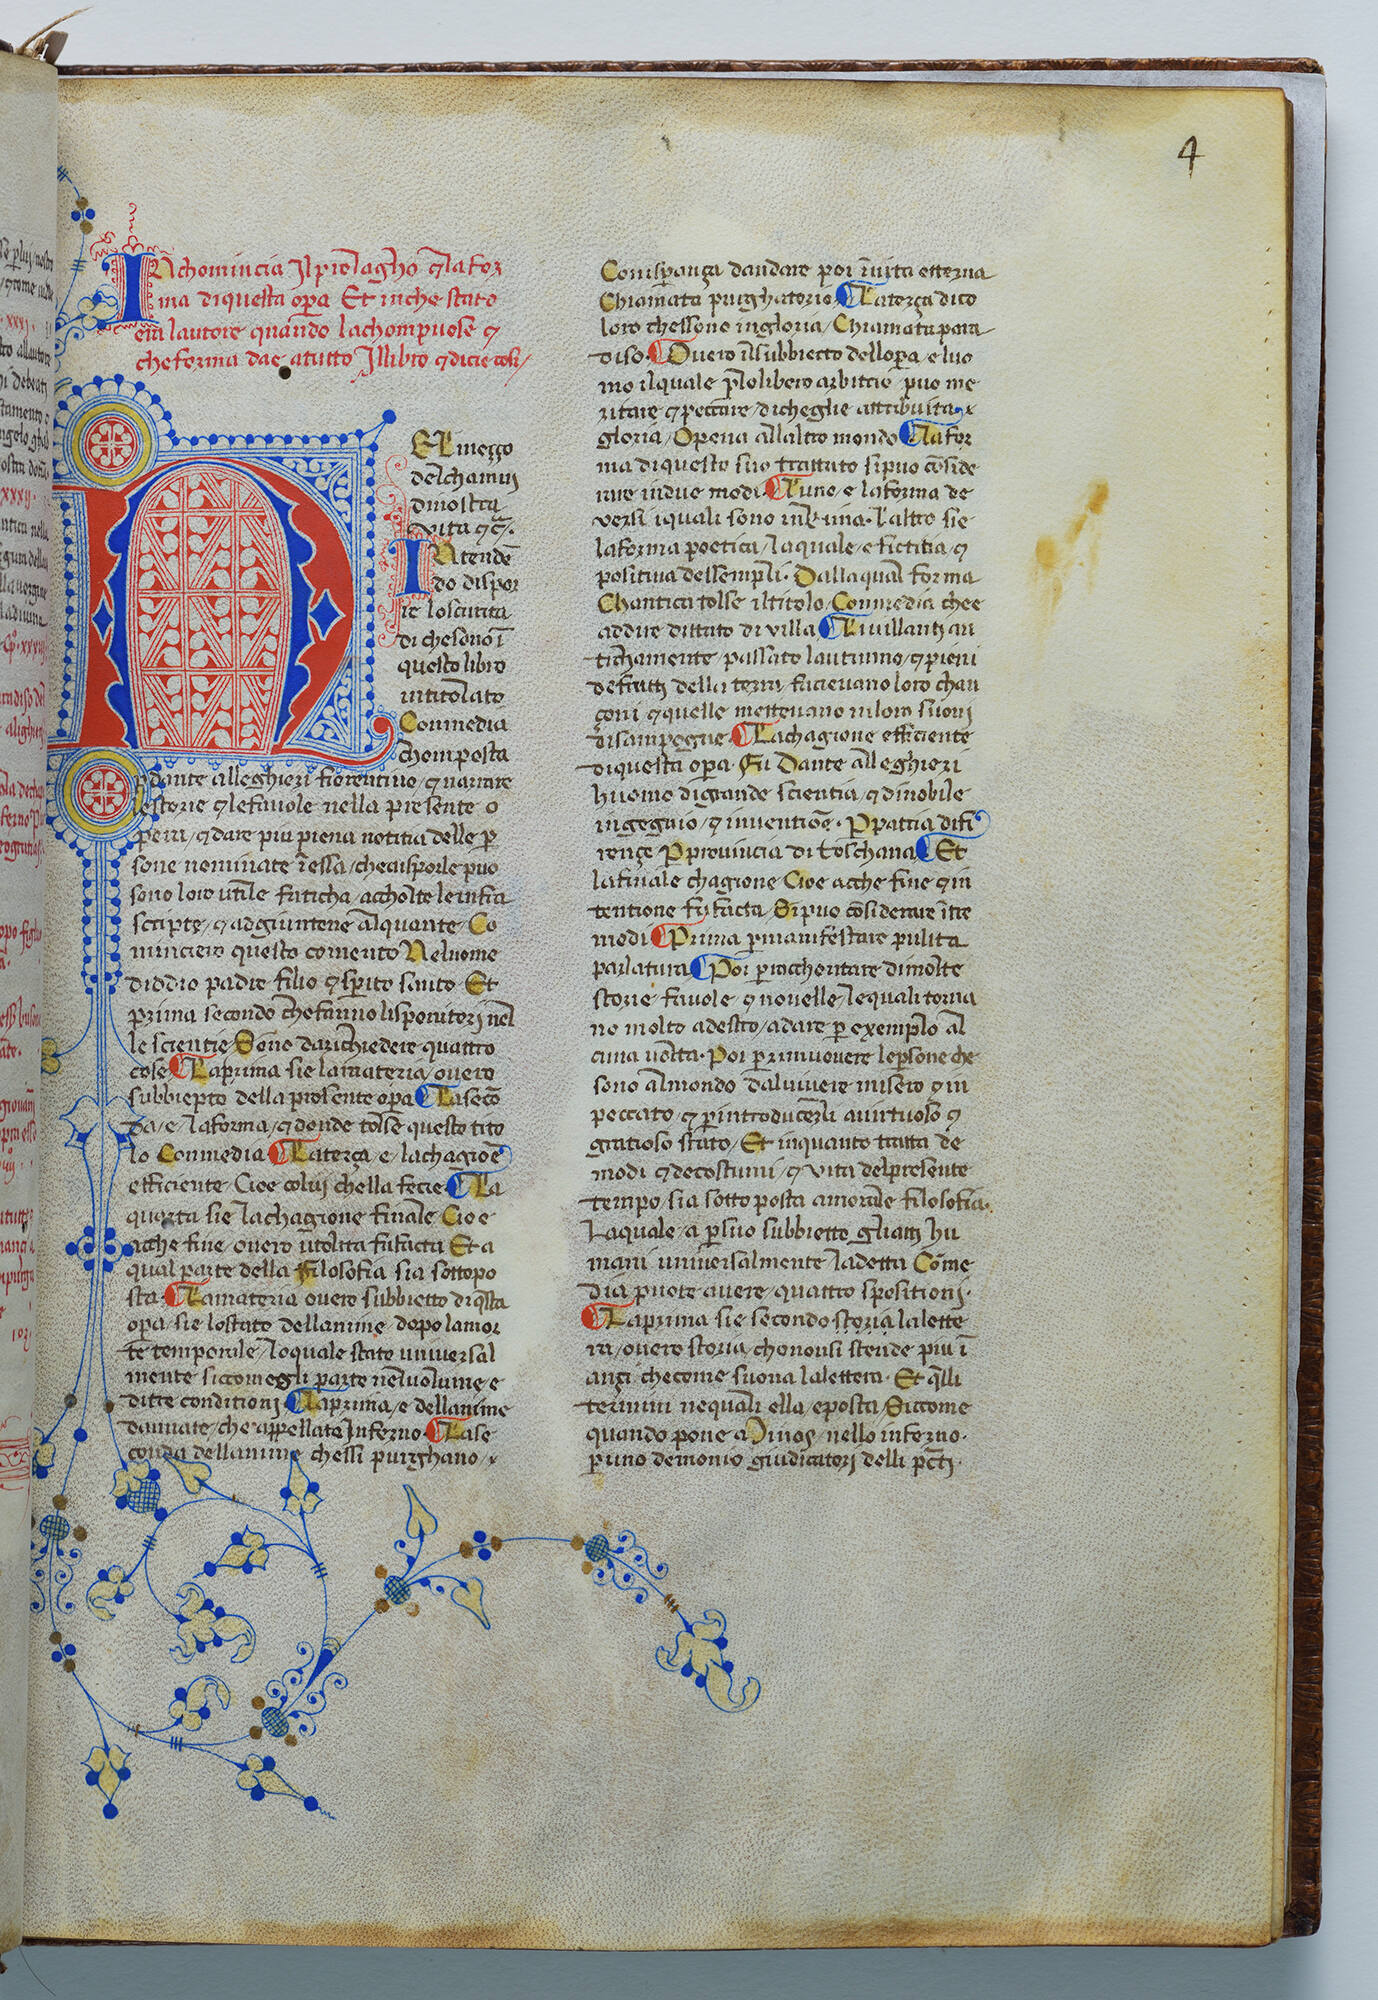 4
INchomincia Il prolagho & la for
ma di questa opa Et in che stato
era lautore quando la chompuose &
che forma dae a tutto Il libro & dicie cosi
NEl mezzo
del chamin
di nostra
vita &c.
INtendē
do dispor
re loscurita
di che sono ī
questo libro
intitolato
Conmedia
chomposta
p dante alleghieri fiorentino & narrare
le storie & le favole nella presente o
pera & dare piu piena notitia delle p
sone nominate ī essa che a isporle puo
sono loro utile faticha acholte le infra
scripte & adgiuntene alquante Co
minciero questo comento Nel nome
diddio padre filio & sp̄ito santo Et
prima secondo che fanno li spositori nel
le scientie Sono da richiedere quattro
cose La prima sie la materia overo
subbiepto della presente opa La secō
da e la forma & donde tolse questo tito
lo Conmedia La terça e la chagiōe
efficiente Cioe colui che lla fecie La
quarta sie la chagione finale Cioe
acche fine overo utolita fu facta Et a
qual parte della filosofia sia sottopo
sta La materia overo subbietto di qsta
opa sie lo stato dellanime dopo la mor
te temporale lo quale stato universal
mente siccome gli parte nel volume e
ditre conditioni La prima e dellanime
dannate che appellato Inferno La se
conda dellanime chessi purghano
Con isperança dandare poi ī vita etterna
Chiamata purghatorio La terça di co
loro chessono in gloria Chiamata para
diso Overo il subbiecto dellopa e luo
mo il quale p lo libero arbitrio puo me
ritare & peccare di che glie attribuita
gloria O pena allaltro mondo La for
ma di questo suo trattato si puo cōside
rare in due modi Luno e la forma de
versi i quali sono in rima laltro sie
la forma poetica la quale e fictitia &
positiva dessempli Dalla qual forma
Chantica tolse il titolo Conmedia che e
addire dittato di villa Li villani an
tichamente passato lautunno & pieni
de frutti della terra facievano loro chan
çoni & quelle mettevano in loro suoni
di sampogne La chagione efficiente
di questa opa Fu Dante alleghieri
huomo di grande scientia & di nobile
ingegnio & inventiōe P patria di fi
rençe P provincia di toschana Et
la finale chagione Cioe acche fine & in
tentione fu facta Si puo cōsiderare ī tre
modi Prima p manifestare pulita
parlatura Poi p racchontare di molte
storie favole & novelle le quali torna
no molto adestro adare p exemplo al
cuna volta Poi p rimuovere le psone che
sono al mondo dal vivere misero & in
peccato & p introducerli a virtuoso &
gratioso stato Et in quanto tratta de
modi & de costumi & vita del presente
tempo sia sottoposta a morale filosofia
La quale a p suo subbietto gli atti hu
mani universalmente la detta Cōme
dia puote avere quattro spositioni
La prima sie secondo storia la lette
ra overo storia che non si stende piu ī
ançi che come suona la lettera Et qlli
termini ne quali ella e posta Siccome
quando pone a Minos nello inferno
p uno demonio giudicatori delli pcti